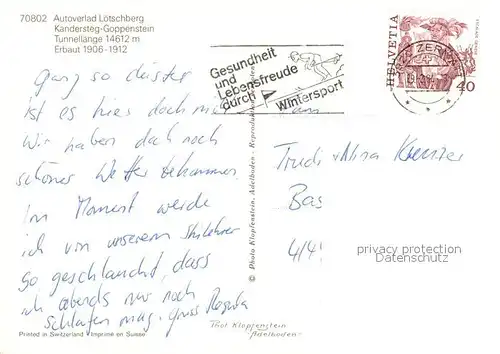 70802 Autoverlad Lötschberg
Kandersteg-Goppenstein
Tunnellänge 14612 m
Erbaut 1906-1912
Gesundheit
und
Lebensfreude
durch
Wintersport
HELVETIA
40
ganz so düster
ist es hier doch nicht
Wir haben doch noch
schönes Wetter bekommen.
Im Moment werde
ich von unserem Skilehrer
so geschlaucht, dass
ich abends nur noch
schlafen mag. Gruss Regula
Trudi + Nina
Bas
privacy protection
Datenschutz
© Photo Klopfenstein, Adelboden
Printed in Switzerland - Imprimé en Suisse
Phot. Klopfenstein
Adelboden